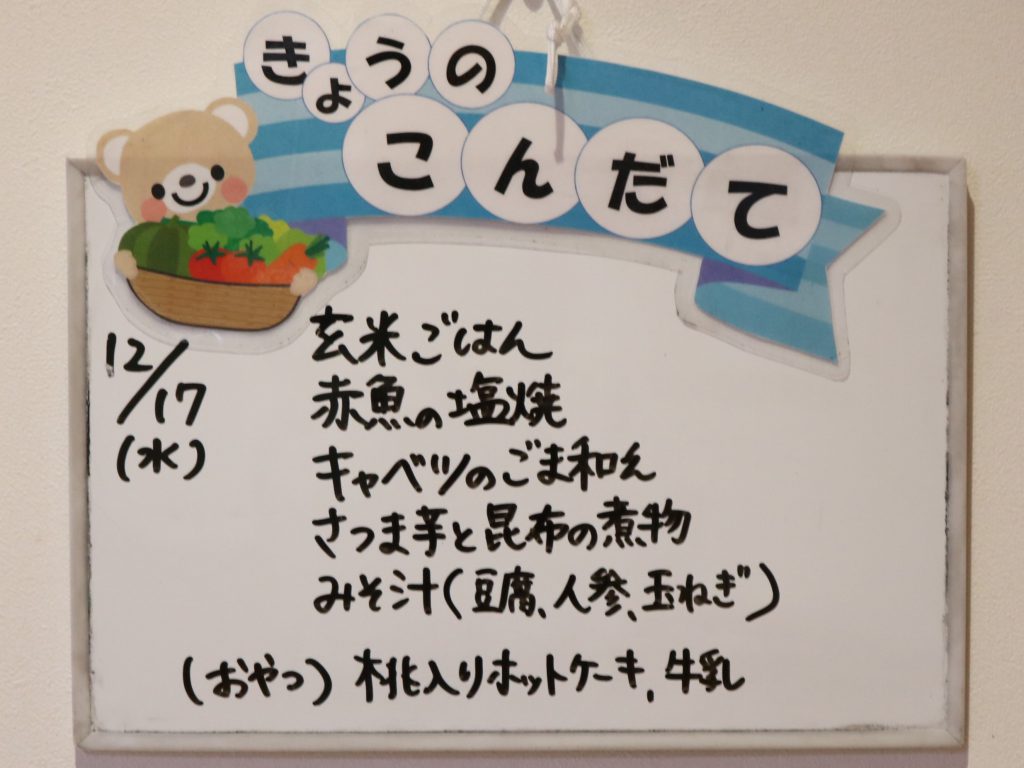 きょうの
こんだて
12/17
(水)
玄米ごはん
赤魚の塩焼
キャベツのごま和え
さつま芋と昆布の煮物
みそ汁(豆腐、人参、玉ねぎ)
(おやつ) 桃入りホットケーキ、牛乳